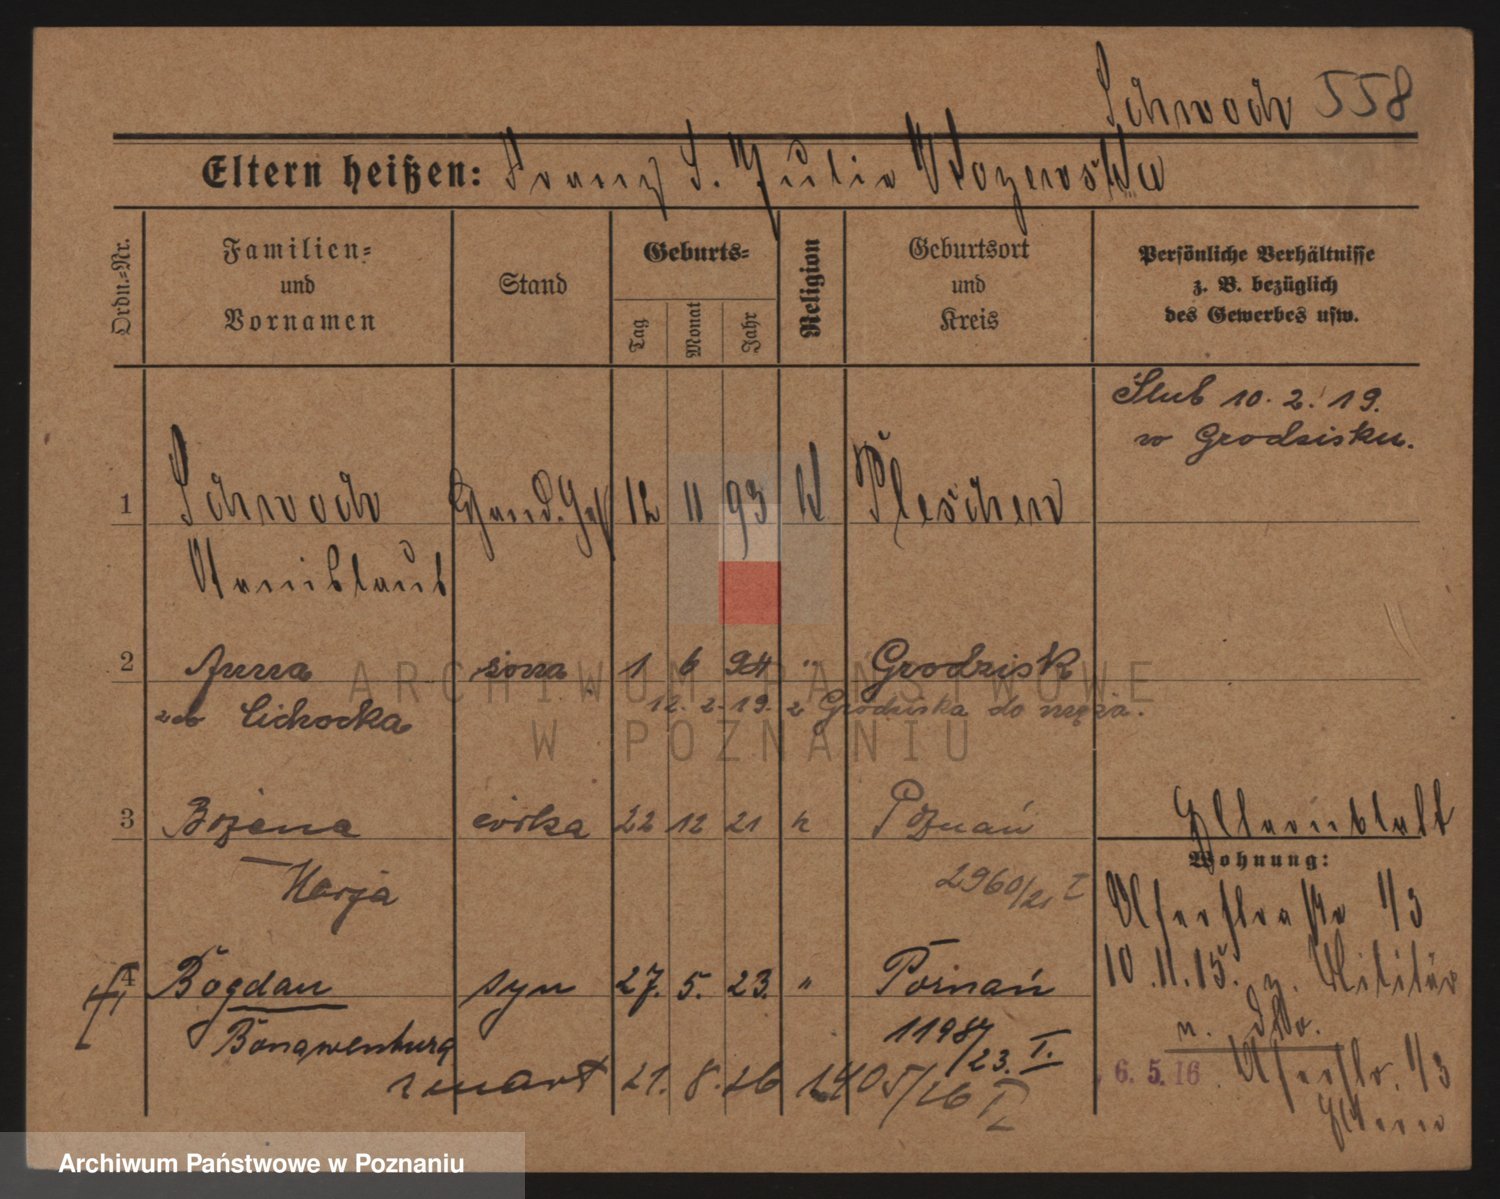 Schwoch 558
Eltern heißen: Franz u. Julia
Ordn.-Nr.
Familien-
und
Vornamen
Stand
Geburts-
Tag
Monat
Jahr
Religion
Geburtsort
und
Kreis
Persönliche Verhältnisse
z. B. bezüglich
des Gewerbes usw.
Ślub 10. 2. 19.
w Grodzisku.
1 Schwoch Hand. Geh 12 11 93 k Pleschen
Stanislaus
2 Anna żona 1 6 94 " Grodzisk
12. 2. 19. z Grodziska do męża.
zd Cichocka
3 Bożena córka 22 12 21 k Poznań
Marja
2960/21 I
Wohnung:
Uferstraße 1/3
10.11.15. z. Militär
4 Bogdan syn 27. 5. 23. " Poznań
Bonawentura
11987/23. I.
zmart 21. 8. 26 1405/26 II
6. 5. 16. Uferstr. 1/3
Eltern
ARCHIWUM PAŃSTWOWE
W POZNANIU
Archiwum Państwowe w Poznaniu